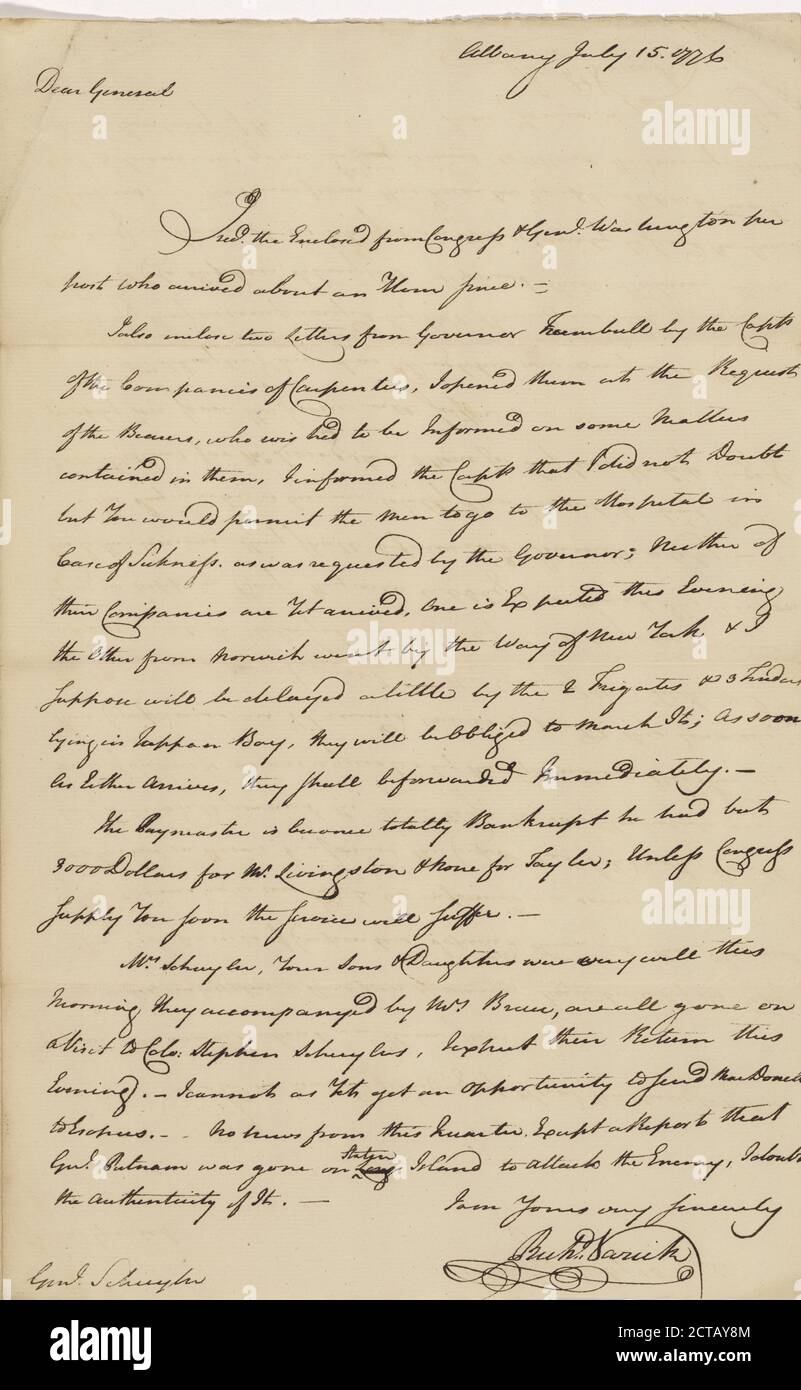 Albany July 15. 1776
Dear General
I recd. the Enclosed from Congress & Genl. Washington per
post who arrived about an Hour since. —
I also enclose two Letters from Governor Trumbull by the Capts
of the Companies of Carpenters, I opened them at the Request
of the Bearers, who wished to be Informed on some Matters
contained in them, I informed the Capts that I did not Doubt
but You would permit the Men to go to the Hospital in
Case of Sickness. as was requested by the Governor; Neither of
their Companies are Yet arrived, One is Expected this Evening
the Other from Norwich went by the Way of New York & I
suppose will be delayed a little by the 2 Frigates & 3 Tenders
lying in Tappan Bay, they will be Obliged to March It; As soon
as Either Arrives, they shall be forwarded Immediately. —
The Paymaster is become totally Bankrupt he had but
3000 Dollars for Mr. Livingston & None for Tayler; Unless Congress
Supply You soon the Service will suffer. —
Mrs Schuyler, Your Sons & Daughters were very well this
Morning they accompanyed by Mrs Bruce, are all gone on
a Visit to Colo: Stephen Schuylers, I expect their Return this
Evening. — I cannot as Yet get an opportunity to send MacDonell
to Esopus. — No news from this Quarter. Except a Report that
Staten
Genl. Putnam was gone on Long Island to attack the Enemy, I doubt
the authenticity of It. —
I am Yours very sincerely
Richd. Varick
Genl. Schuyler
a
alamy
Image ID: 2CTAY8M
www.alamy.com